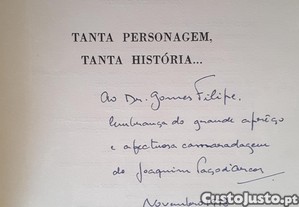 TANTA PERSONAGEM,
TANTA HISTÓRIA...
Ao Dr. Gomes Filipe,
lembrança do grande aprêço
e afectuosa camaradagem
do Joaquim Paço d'Arcos
Novembro
CustoJusto.pt